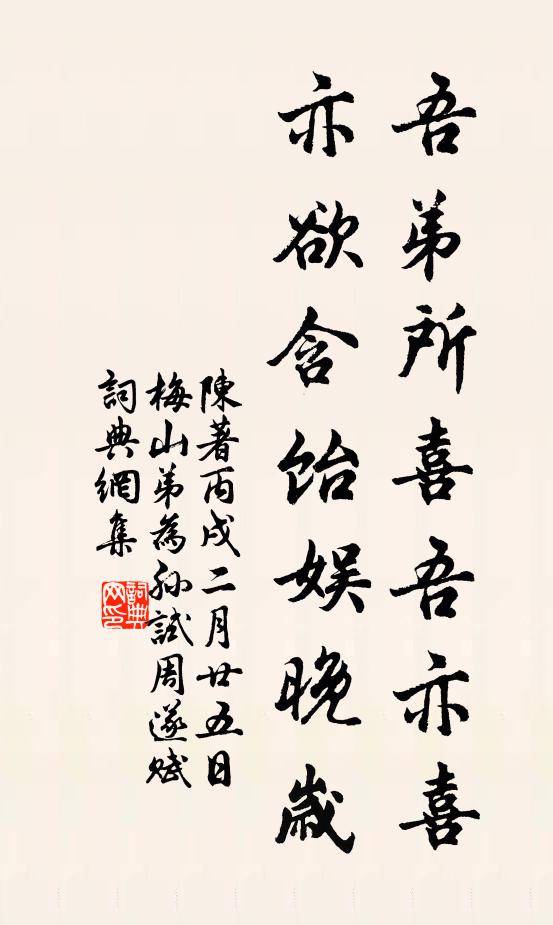 吾弟所喜吾亦喜
亦欲含飴娱晚歲
陳著丙戌二月廿五日
梅山弟為孙試周遂赋
詞典網集
詞典网印